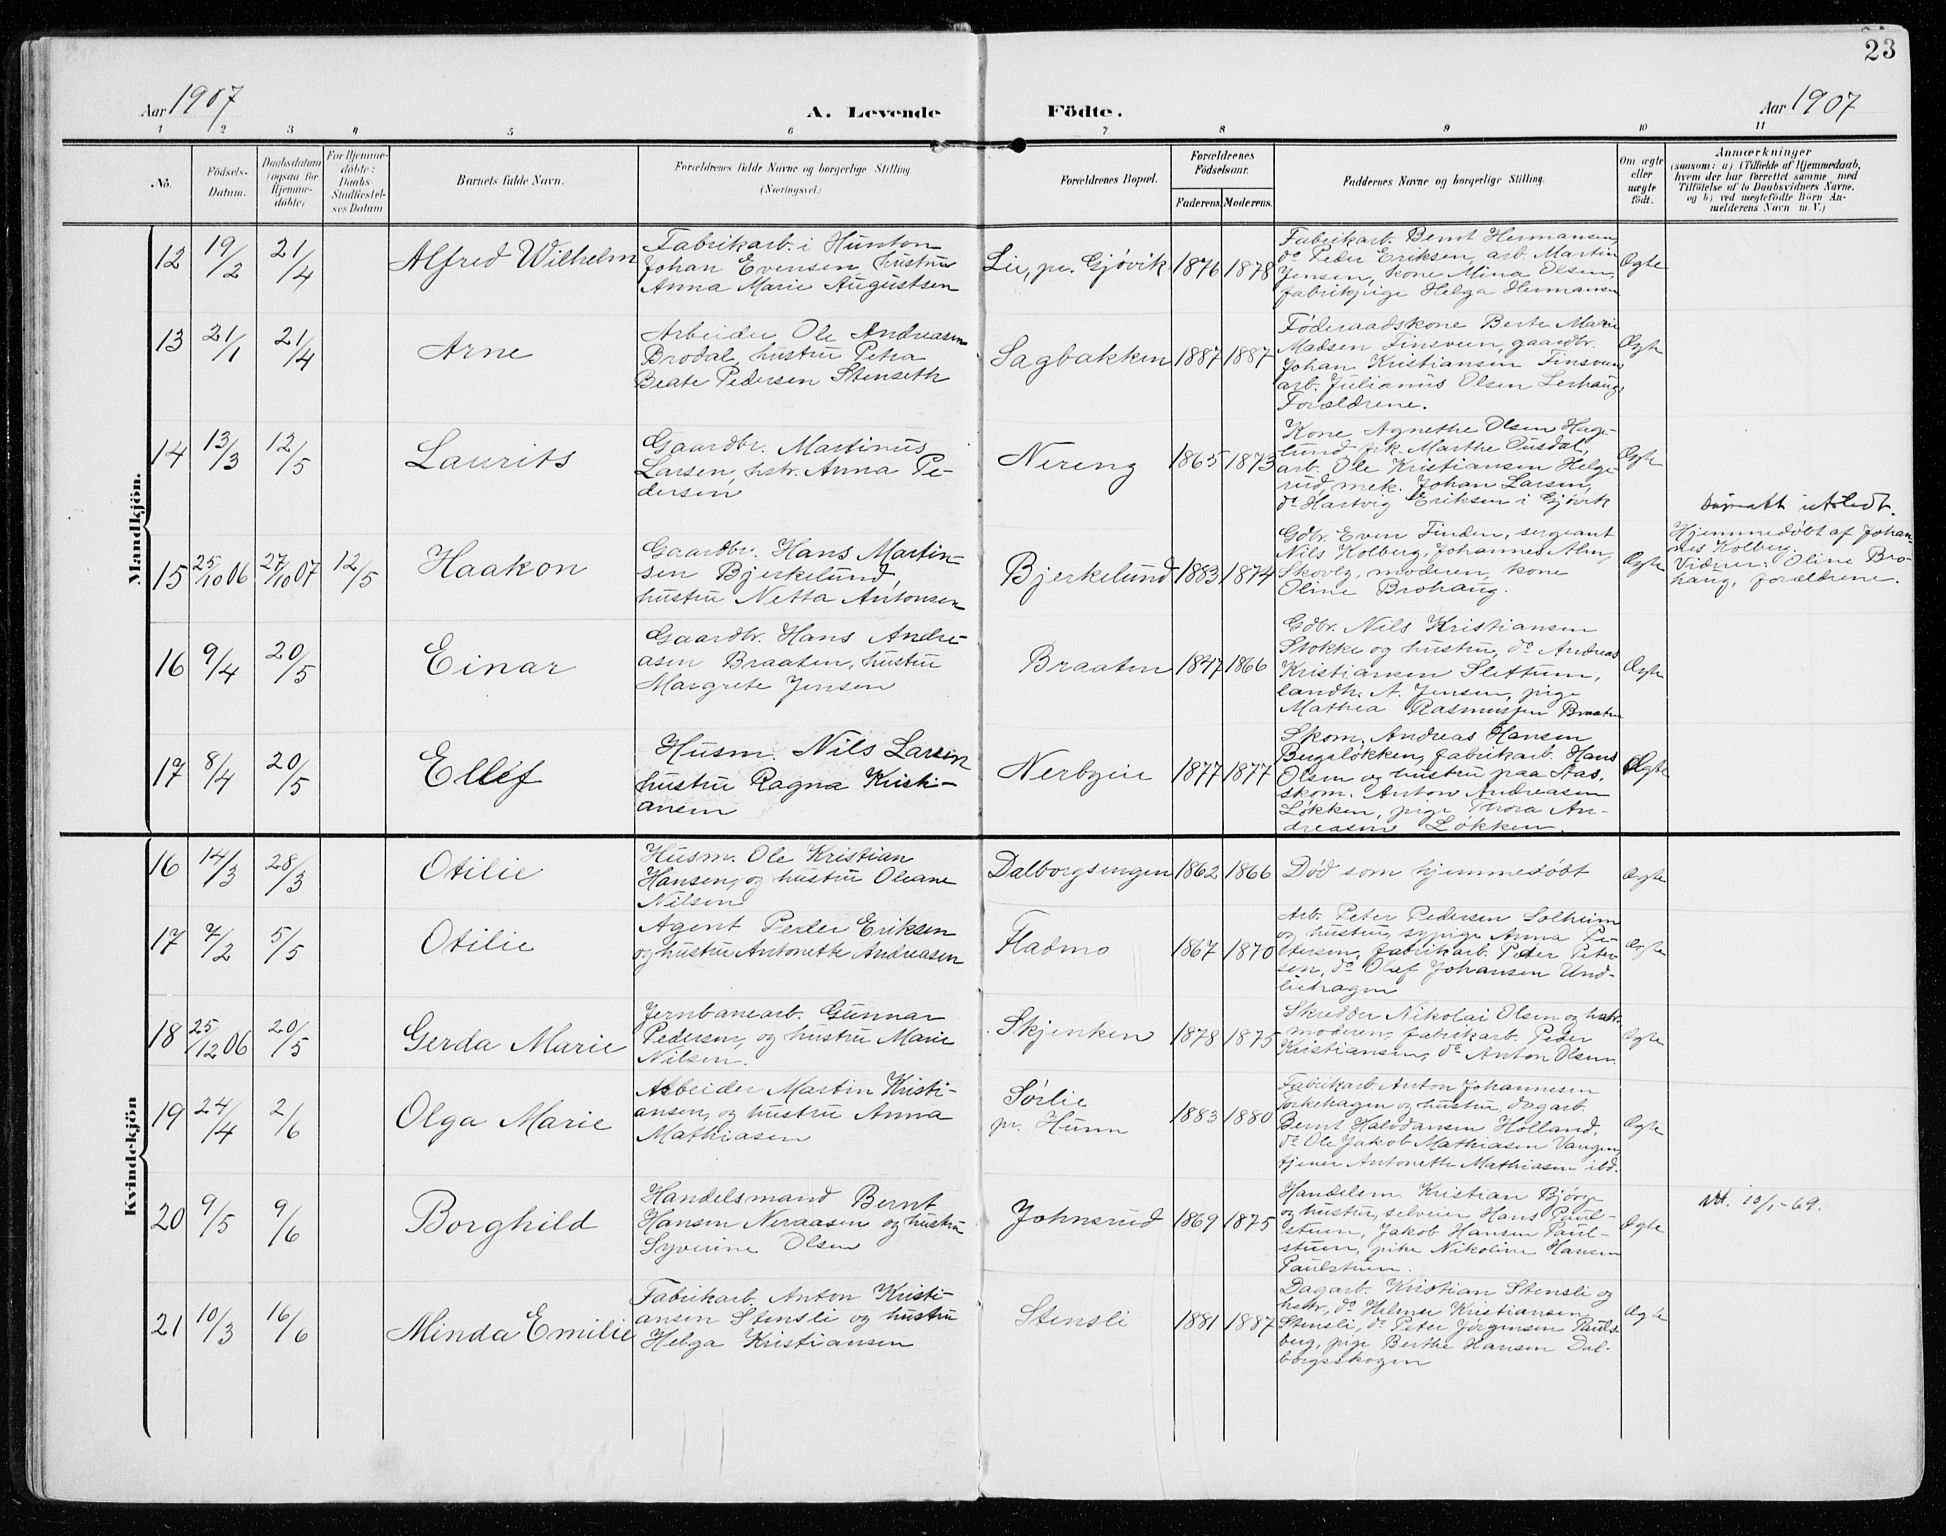 23
Aar 1907
A. Levende
Födte.
Aar 1907
1 2 3 4 5 6 7 8 9 10 11
No.
Födsels-
Datum.
Daabsdatum
(ogsaa for
Hjemme-
döbte)
For Hjemme-
döbte:
Daabs-
Stadfæstel-
ses Datum
Barnets fulde Navn.
Forældrenes fulde Navne og borgerlige Stilling
(Næringsvei.)
Forældrenes Bopæl.
Forældrenes
Födselsaar.
Faderens. Moderens.
Faddernes Navne og borgerlige Stilling.
Om ægte
eller
uægte
födt.
Anmærkninger
(saasom: a) i Tilfælde af Hjemmedaab,
hvem der har forrettet samme med
Tilföielse af to Daabsvidners Navne,
og b) ved uægtefödte Börn An-
melderens Navn m. V.)
Mandkjön.
12 19/2 21/4
Alfred Wilhelm
Fabrikarb. i Hunton
Johan Evensen, hustru
Anna Marie Augustsen
Lie, pr. Gjøvik 1876 1878
Fabrikarb. Bernt Hermansen,
do Peder Eriksen, arb. Martin
Jensen, kone Mina Olsen,
fabrikpige Helga Hermansen
Ægte
13 21/1 21/4
Arne
Arbeider Ole Andreasen
Brodal, hustru Petra
Beate Pedersen Stenseth
Sagbakken 1887 1887
Føderaadskone Berte Marie
Madsen Finsveen, gaardbr.
Johan Kristiansen Finsveen
arb. Julianus Olsen Lerhaug,
Forældrene.
Ægte
14 13/3 12/5
Laurits
Gaardbr. Martinus
Larsen, hstr. Anna Pe-
dersen
Nereng 1865 1873
Kone Agnethe Olsen Hage-
lund, frk. Marthe Ousdal,
arb. Ole Kristiansen Helge-
rud, mek. Johan Larsen,
do Hartvig Eriksen i Gjøvik
Ægte
15 25/10 06 27/10 07 12/5
Haakon
Gaardbr. Hans Martin-
sen Bjerkelund,
hustru Netta Antonsen
Bjerkelund 1883 1874
Gdbr. Even Finden, sergeant
Nils Kolberg, Johannes Alm,
Skovlz, moderen, kone
Oline Brohaug.
Ægte
utstedt.
Hjemmedøbt af Johan-
nes Kolberg.
Vidner: Oline Bro-
haug, forældrene.
16 9/4 20/5
Einar
Gaardbr. Hans Andre-
asen Braaten, hustru
Margrete Jensen
Braaten 1847 1866
Gdbr. Nils Kristiansen
Stokke og hustru, do Andreas
Kristiansen Slettum,
landh. A. Jensen, pige
Mathea Rasmussen Braaten
Ægte
17 8/4 20/5
Ellef
Husm. Nils Larsen
hustru Ragna Kristi-
ansen
Nerbyeie 1877 1877
Skom. Andreas Hansen
Bugsløkken, fabrikarb. Hans
Olsen og hustru paa Aas,
skom. Anton Andreasen
Løkken, pige Thora An-
dreasen Løkken.
Ægte
Kvindekjön
16 14/3 28/3
Otilie
Husm. Ole Kristian
Hansen, og hustru Oleane
Nilsen
Dalborgsengen 1862 1866
Død som hjemmedøbt
Ægte
17 7/2 5/5
Otilie
Agent Peder Eriksen
og hustru Antonette Andreasen
Fladmo 1867 1870
Arb. Peter Pedersen Solheim
og hustru, sypige Anna Pe-
tersen, fabrikarb. Peder Peter-
sen, do Olaf Johansen Und-
liehagen
Ægte
18 25/12 06 20/5
Gerda Marie
Jernbanearb. Gunnar
Pedersen, og hustru Marie
Nilsen.
Skjenken 1878 1875
Skredder Nikolai Olsen og hstr.
moderen, fabrikarb. Peder
Kristiansen, do Anton Olsen
Ægte
19 24/4 2/6
Olga Marie
Arbeider Martin Kristi-
ansen, og hustru Anna
Mathiasen
Sørlie
pr. Hunn
1883 1880
Fabrikarb. Anton Johannesen
Torkehagen og hustru, dagarb.
Bernt Halvdansen Holland,
do Ole Jakob Mathiasen Vangen,
tjener Antonette Mathiasen ibd.
Ægte
20 9/5 9/6
Borghild
Handelsmand Bernt
Hansen Neraasen og hustru
Syverine Olsen
Johnsrud 1869 1875
Handelsm. Kristian Bjørge
og hustru, selveier Hans Paul-
stuen, Jakob Hansen Paul-
stuen, pike Nikoline Hansen
Paulstuen.
Ægte
Att. 10/1-69.
21 10/3 16/6
Minda Emilie
Fabrikarb. Anton Kristi-
ansen Stensli og hustru
Helga Kristiansen
Stensli 1881 1887
Dagarb. Kristian Stensli og
hstr, do Helmer Kristiansen
Stensli, do Peter Jørgensen Pauls-
berg, pige Berthe Hansen Dal-
borgsskogen
Ægte